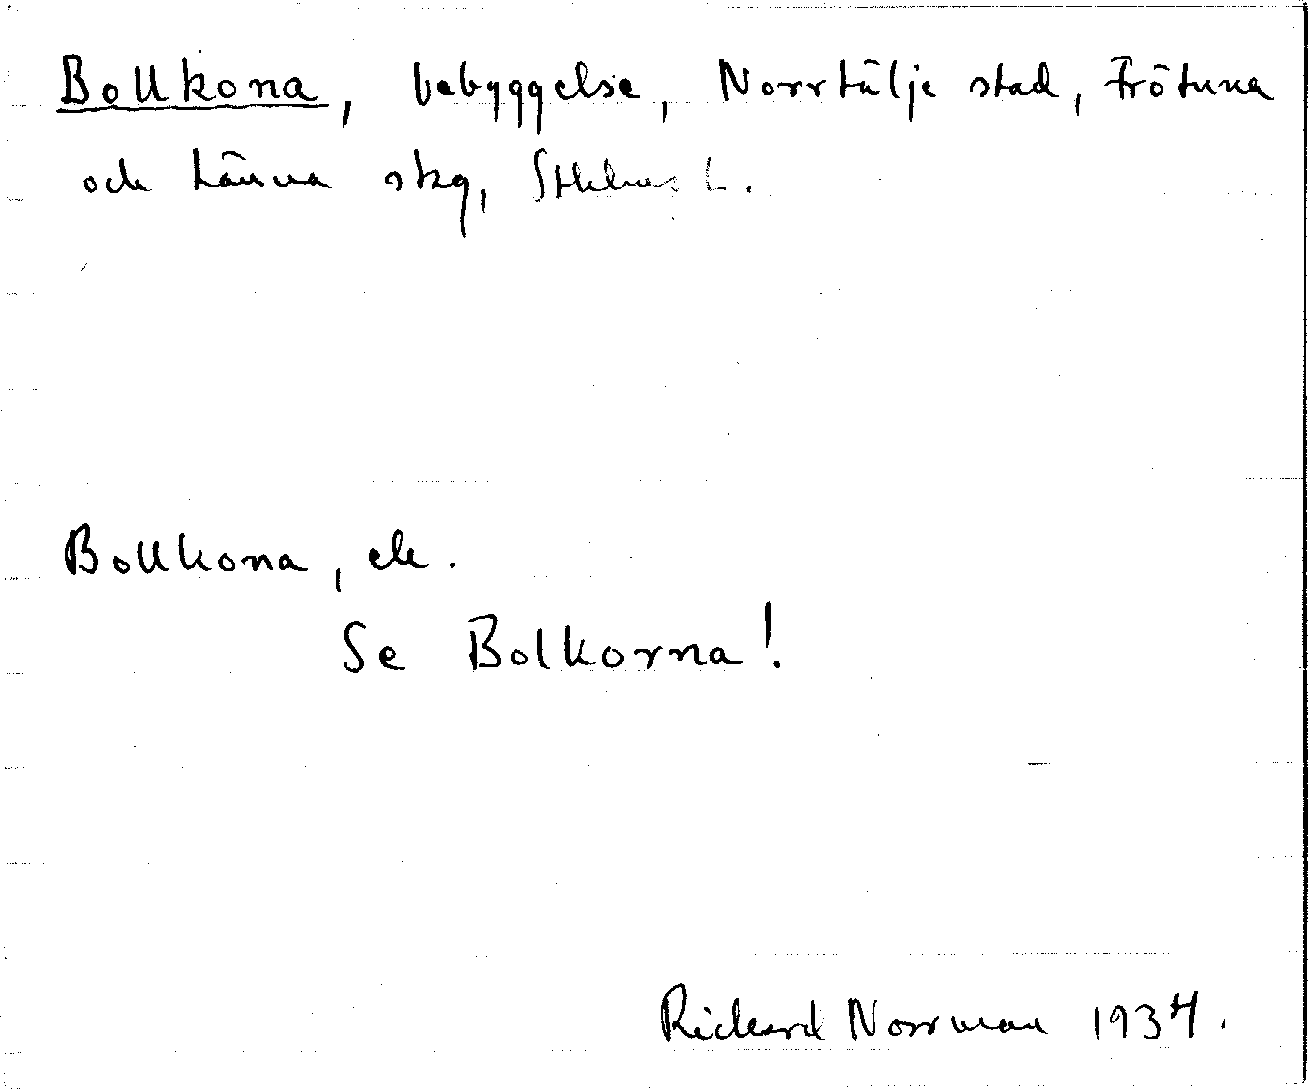 Bollkona, bebyggelse, Norrtälje stad, Frötuna
och Länna skg, Sthlms L.
Bollkona, ek.
Se Bolkorna!
Rickard Norrman 1934.